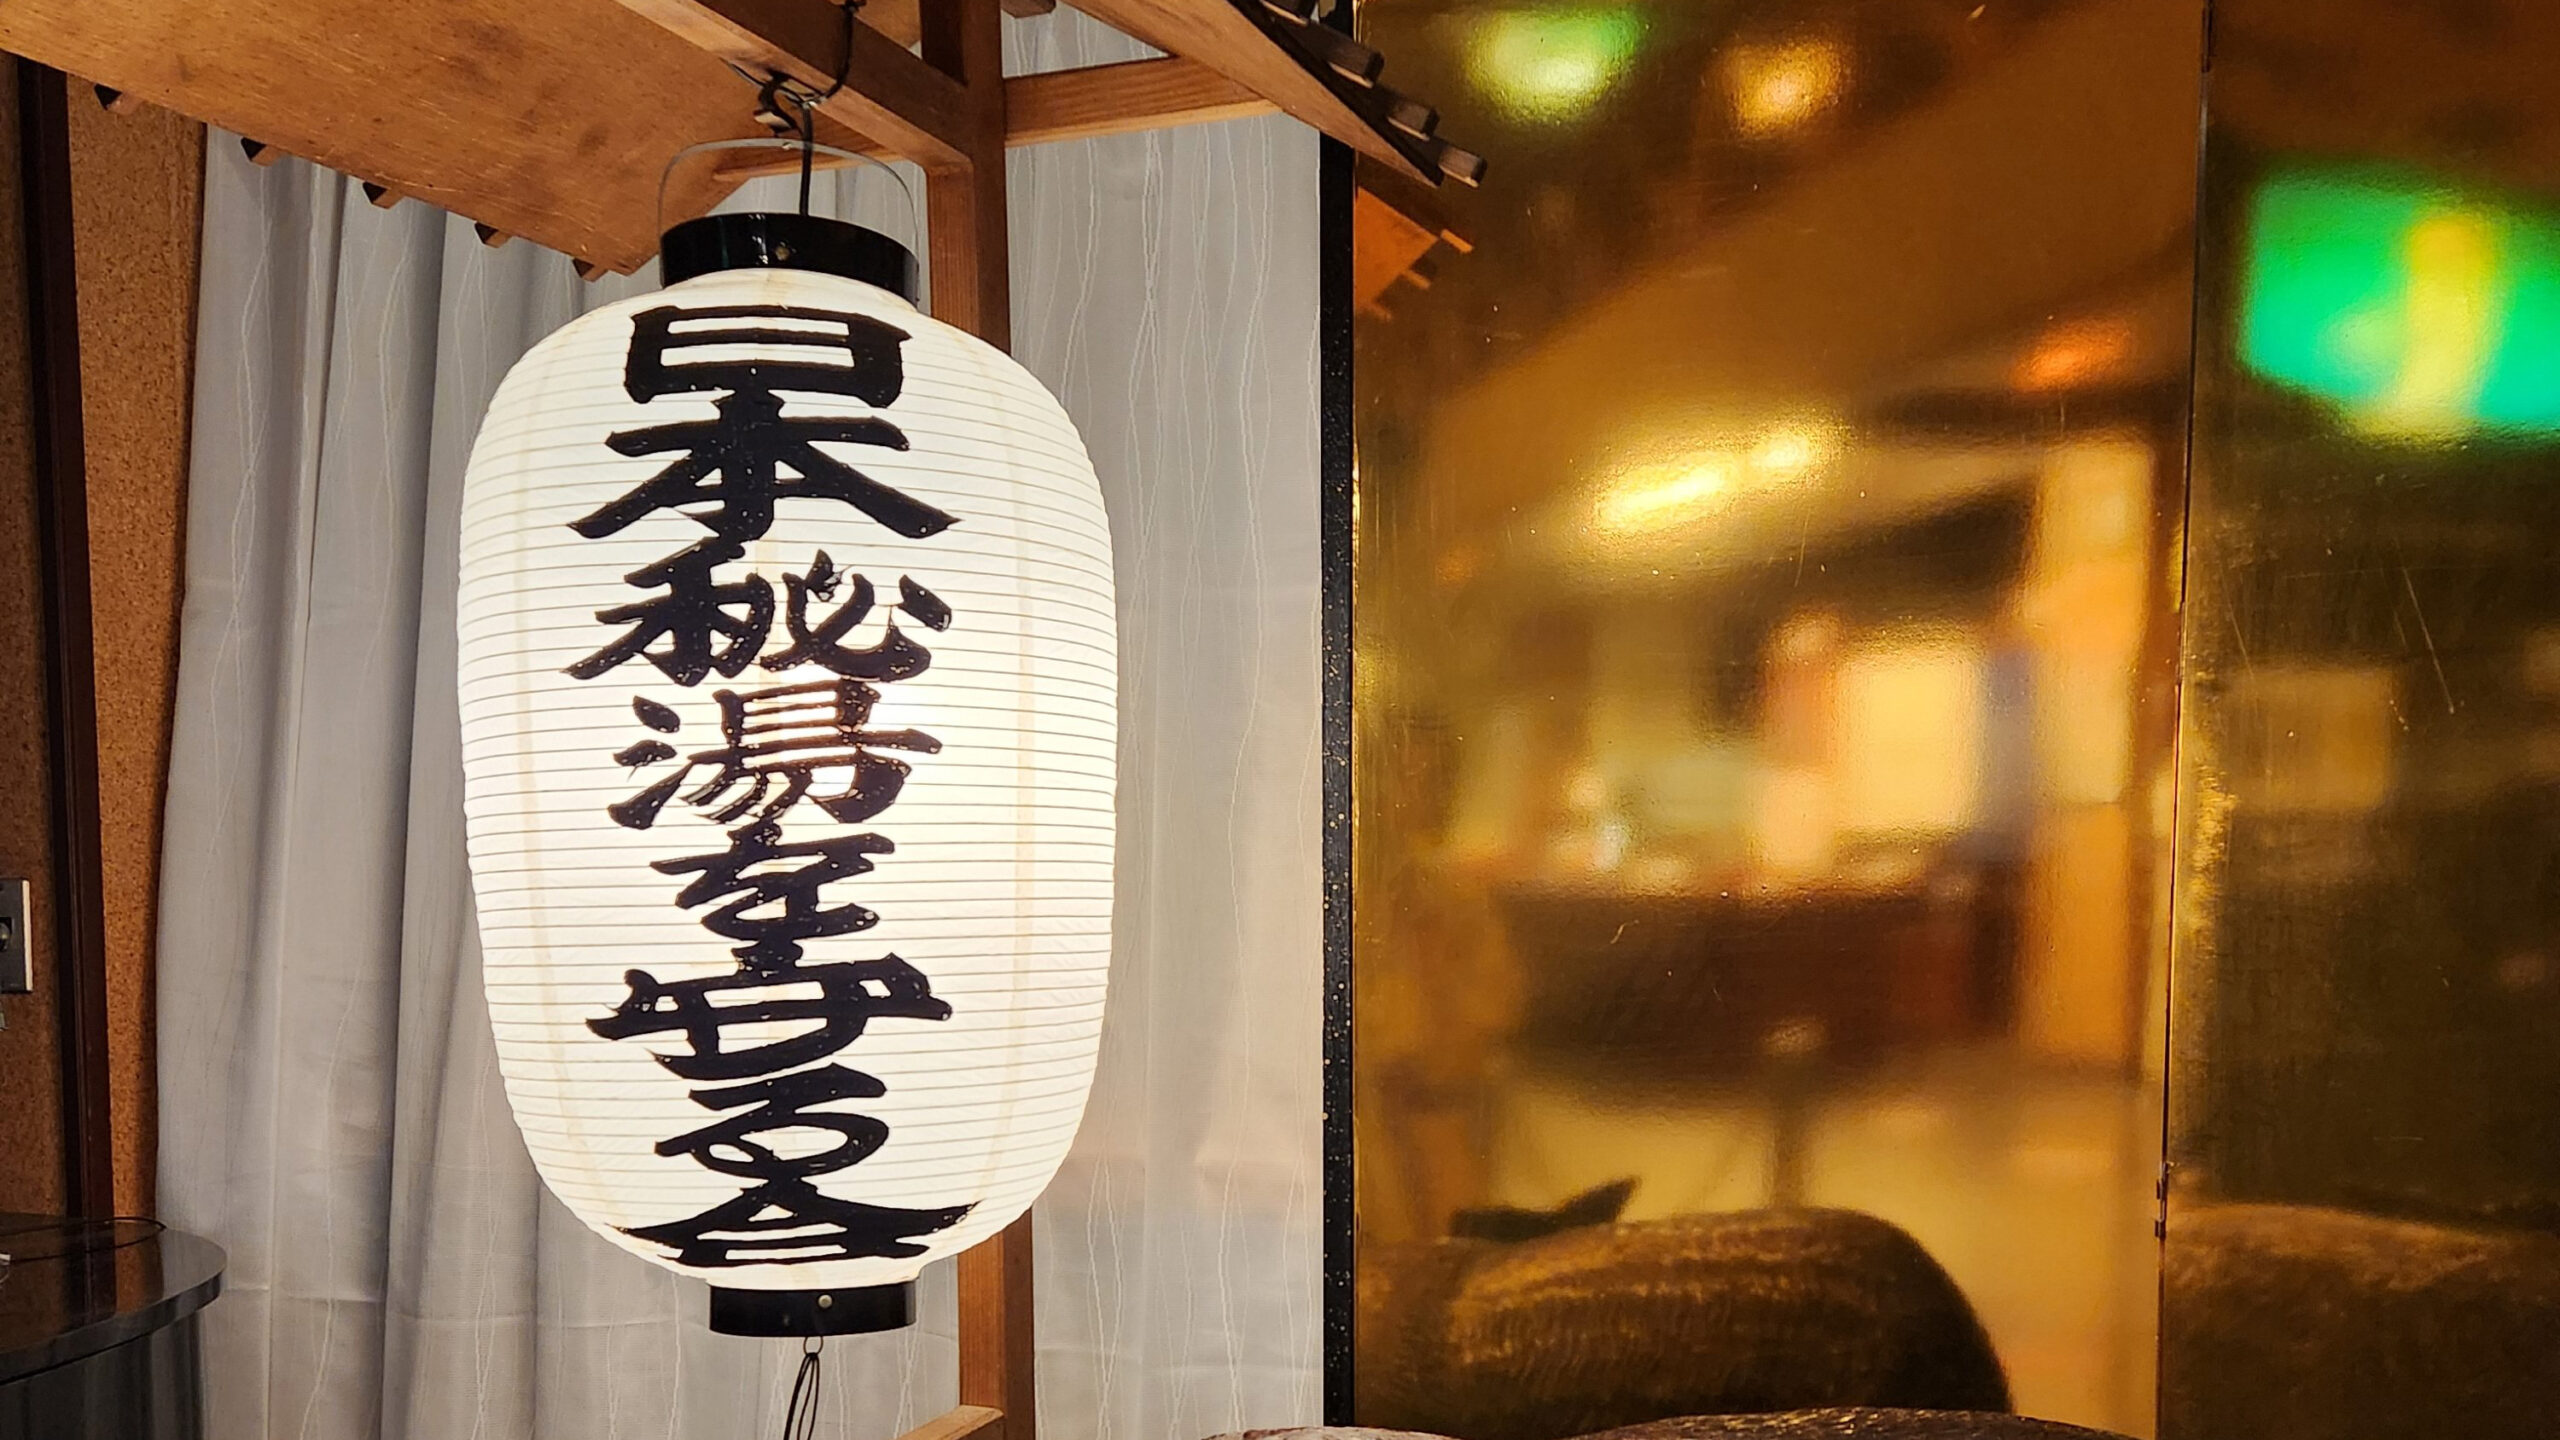 日本秘湯を守る会